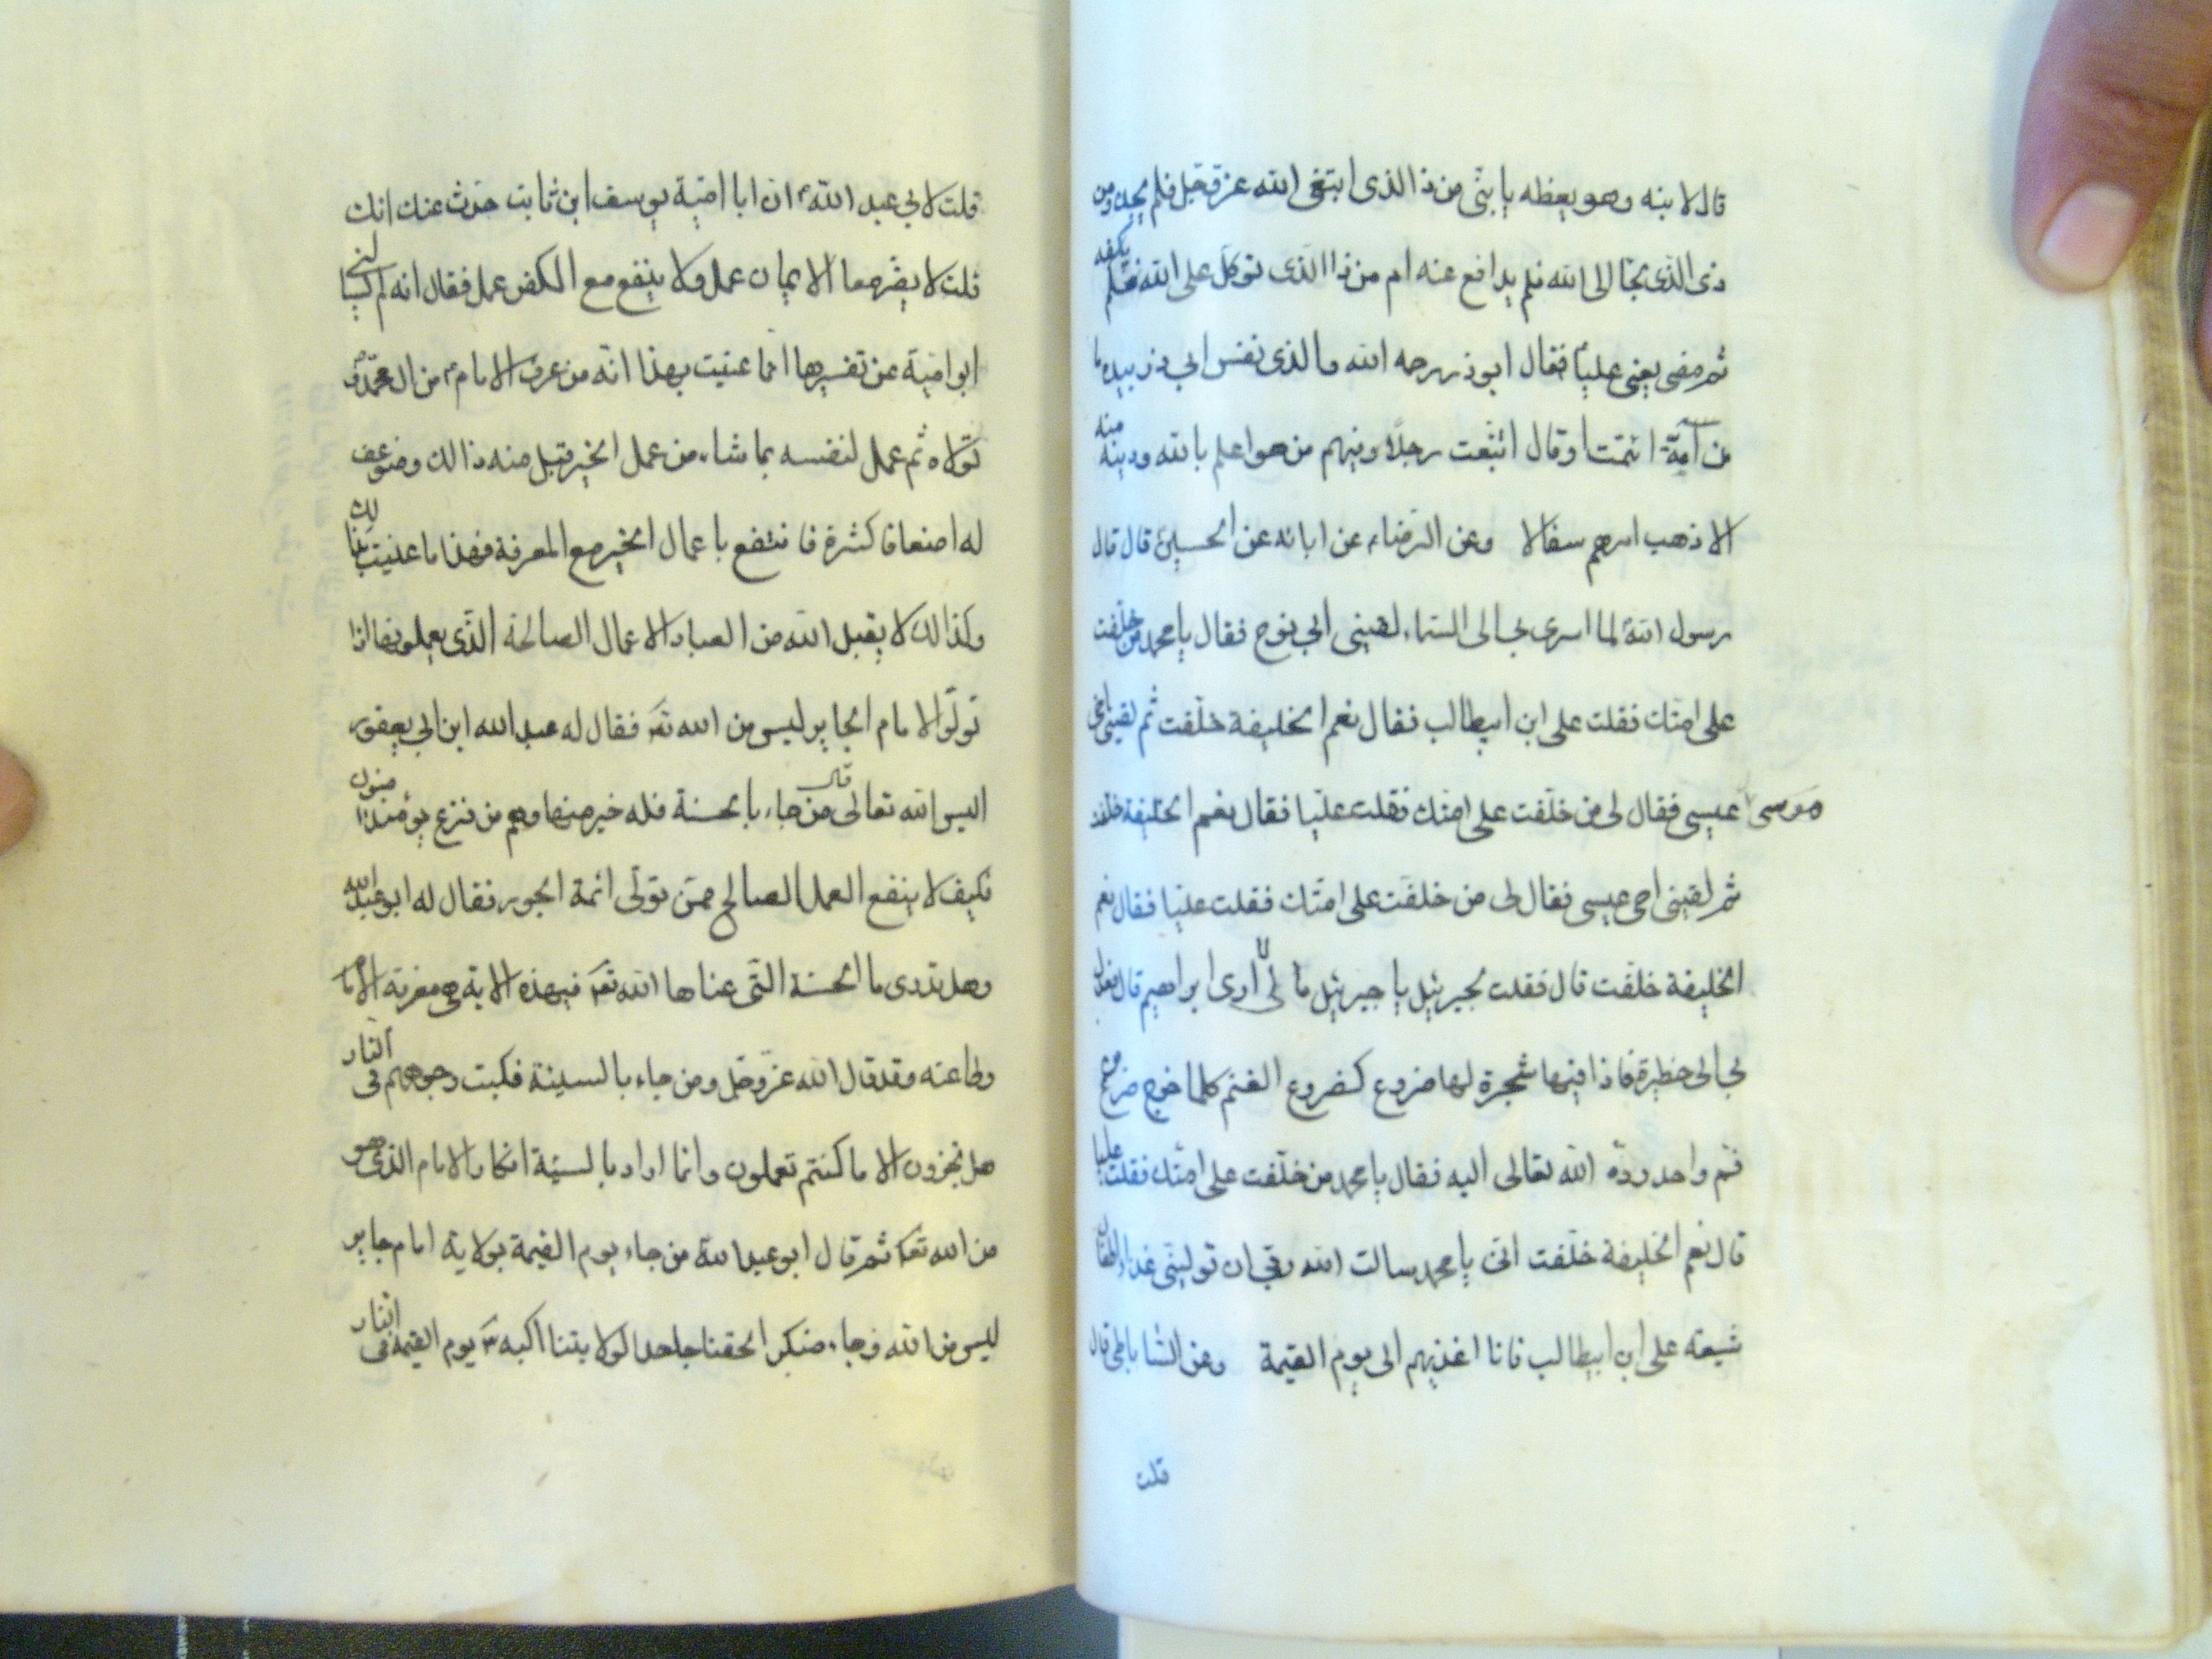 قال لابنه وهو يعظه يا بنى من ذا الذى ابتغى الله عز وجل فلم يجده ومن
ذى الذى لجأ الى الله فلم يدافع عنه ام من ذا الذى توكل على الله فلم يكفه
ثم مضى يعنى عليا فقال ابو ذر رحمه الله والذى نفس ابي ذر بيده ما
من امة ائتمت او قال اتبعت رجلا وفيهم من هو اعلم بالله ودينه منه
الا ذهب امرهم سفالا وعن الرضاء عن ابائه عن الحسين قال قال
رسول الله لما اسرى بى الى السماء لقينى ابي نوح فقال يا محمد من خلفت
على امتك فقلت على ابن ابيطالب فقال نعم الخليفة خلفت ثم لقينى اخى
موسى عيسى فقال لى من خلفت على امتك فقلت عليا فقال نعم الخليفة خلفت
ثم لقينى اخى عيسى فقال لى من خلفت على امتك فقلت عليا فقال نعم
الخليفة خلفت قال فقلت لجبرئيل يا جبرئيل ما لى لا ارى ابراهيم قال فعدل
بى الى حظيرة فاذا فيها شجرة لها ضروع كضروع الغنم كلما خرج ضرع من
فم واحد رده الله تعالى اليه فقال يا محمد من خلفت على امتك فقلت عليا
قال نعم الخليفة خلفت انى يا محمد سالت الله ربى ان تولينى غذاء اطفال
شيعة على ابن ابيطالب فانا اغذيهم الى يوم القيمة وعن الشاباطى قال
قلت
قلت لابي عبد الله ان ابا امية يوسف ابن ثابت حدث عنك انك
قلت لا يضر مع الايمان عمل ولا ينفع مع الكفر عمل فقال انه لم يسئلنى
ابو امية عن تفسيرها انما عنيت بهذا انه من عرف الامام من ال محمد و
تولاه ثم عمل لنفسه بما شاء من عمل الخير قبل منه ذالك وضوعف
له اضعافا كثيرة فانتفع باعمال الخير مع المعرفة فهذا ما عنيت بذالك
وكذالك لا يقبل الله من العباد الاعمال الصالحة الذى يعملونها اذا
تولوا الامام الجاير ليس من الله تع فقال له عبد الله ابن ابي يعفور
اليس الله تعالى قال من جاء بالحسنة فله خير منها وهم من فزع يومئذ امنون
فكيف لا ينفع العمل الصالح ممن تولى ائمة الجور فقال له ابو عبد الله
وهل تدرى ما الحسنة التى عناها الله تع فى هذه الاية هى معرفة الامام
وطاعته وقد قال الله عز وجل ومن جاء بالسيئة فكبت وجوههم فى النار
هل تجزون الا ما كنتم تعملون وانما اراد بالسيئة انكار الامام الذى هو
من الله تع ثم قال ابو عبد الله من جاء يوم القيمة بولاية امام جاير
ليس من الله وجاء منكر الحقنا جاحدا لولايتنا اكبه الله يوم القيمة فى النار